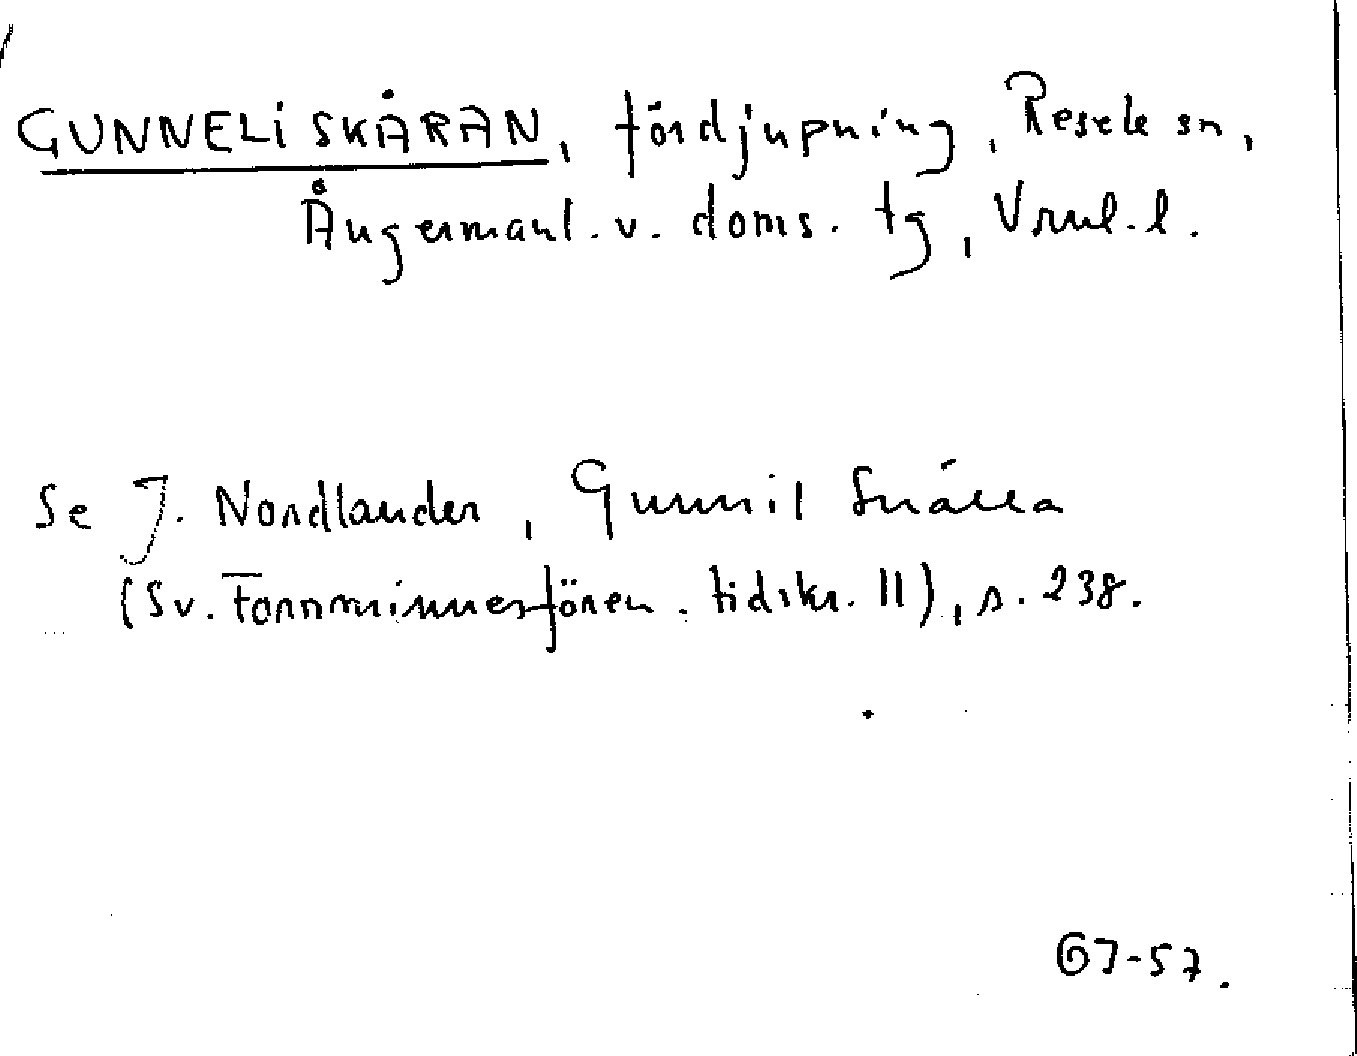 GUNNELISKÅRAN, fördjupning, Resele sn,
Ångermanl. v. doms. tg, Vrnl. l.
Se J. Nordlander, Gunnil Snälla
(Sv. Fornminnesfören. tidskr. 11), s. 238.
67-57.